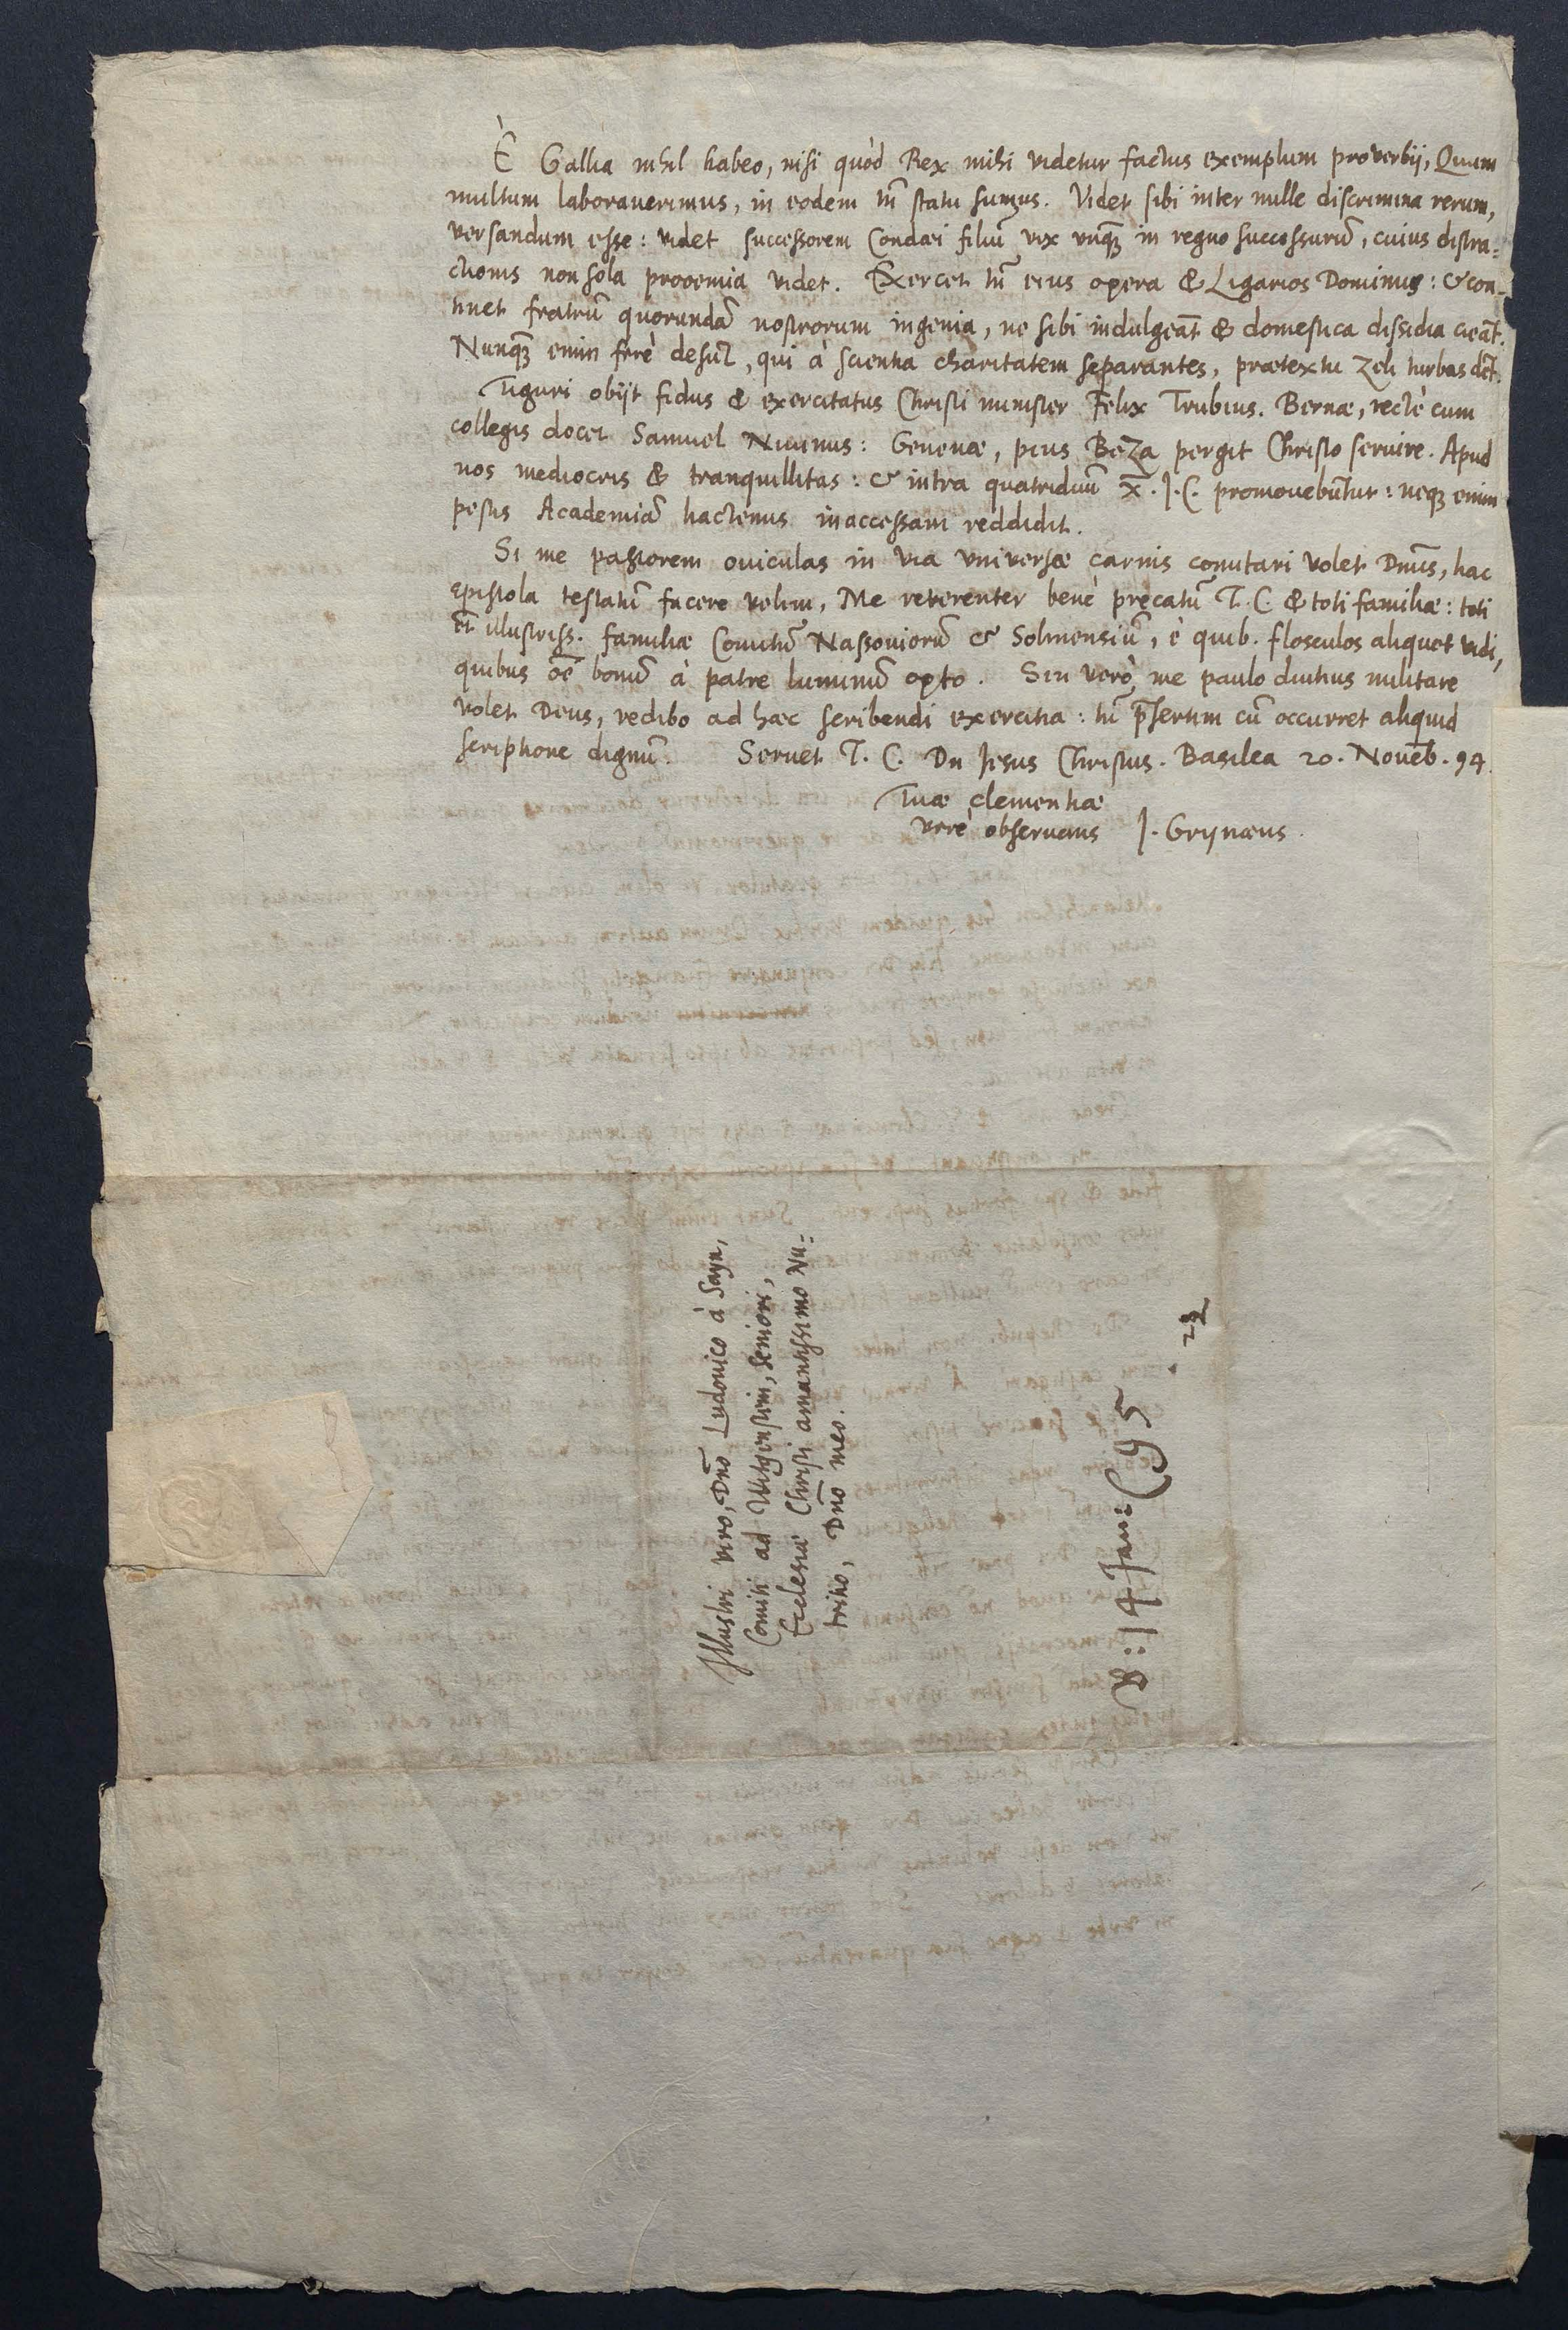 È Gallia nihil habeo, nisi quòd Rex mihi videtur factus exemplum proverbij, Quum
multum laboraverimus, in eodem tn̄ statu sumus. Videt sibi inter mille discrimina rerum,
versandum esse: videt successorem Condæi filiū vix unqꝫ in regno successurū, cuius distra=
ctionis non sola prooemia videt. Exercet tn̄ eius opera & Ligarios Dominus: & con-
tinet fratrū quorundā nostrorum ingenia, ne sibi indulgeāt & domestica dissidia cieāt.
Nunqꝫ enim ferè desūt, qui à scientia charitatem separantes, prætextu zeli turbas dēt.
Tiguri obijt fidus & exercitatus Christi minister Felix Trubius. Bernæ, rectè cum
collegis docet Samuel : Genevæ, pius Beza pergit Christo servire. Apud
nos mediocris & tranquillitas: & intra quatriduū x̄. J. C. promovebūtur: neqꝫ enim
pestis Academiā hactenus inaccessam reddidit.
Si me pastorem oviculas in via universæ carnis comitari volet Dn̄us, hac
epistola testatū facere velim, Me reverenter benè precatū T. C. & toti familiæ: toti
et̄ illustriss. familiæ Comitū Nassoviorū & Solmensiū, è quib. flosculos aliquot vidi,
quibus oē bonū à patre luminū opto. Sin verò me paulo diutius militare
volet Deus, redibo ad hæc scribendi exercitia: tū p̄sertim cū occurret aliquid
scriptione dignū. Servet T. C. Dn Jesus Christus. Basilea 20. Novēb. 94.
Tuæ clementiæ
verè observans J. Grynæus.
Illustri viro, Dn̄o Ludovico à Sayn,
Comiti ad Witgenstein, seniori,
Ecclesiæ Christi amantissimo Nu=
tritio, Dn̄o meo.
14 Jan: 95